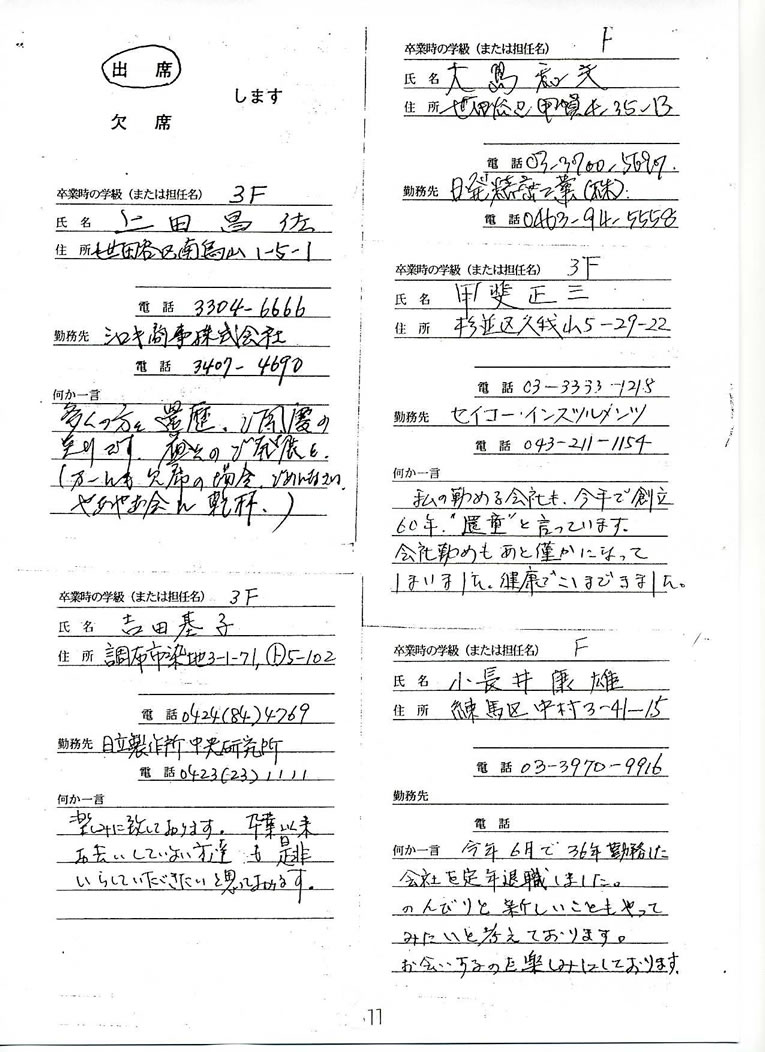 出席
します
欠席
卒業時の学級（または担任名） 3F
氏名 仁田昌佐
住所 世田谷区南烏山 1-5-1
電話 3304-6666
勤務先 シロキ商事株式会社
電話 3407-4690
何か一言
多くの方も還歴、ご同慶の
至りです。 のご発展を。
(万一私も欠席の場合、ごめんなさい、
やあやあ会に乾杯、)
卒業時の学級（または担任名） 3F
氏名 吉田基子
住所 調布市染地3-1-71, ㋣5-102
電話 0424(84)4769
勤務先 日立製作所 中央研究所
電話 0423(23)1111
何か一言
楽しみに致しております。 卒業以来
お会いしていない方達も是非
いらしていただきたいと思っております。
卒業時の学級（または担任名） F
氏名 大島
住所 世田谷区 4-35-13
電話 03-3700-5697.
勤務先 日発精密工業(株).
電話 0463-94-5558
卒業時の学級（または担任名） 3F
氏名 甲斐正三
住所 杉並区久我山5-29-22
電話 03-3333-1218
勤務先 セイコー・インスツルメンツ
電話 043-211-1154
何か一言
私の勤める会社も、今年で創立
60年、"還童"と言っています。
会社勤めもあと僅かになって
しまいました。健康でこいまできました。
卒業時の学級（または担任名） F
氏名 小長井康雄
住所 練馬区中村3-41-15
電話 03-3970-9916
勤務先
電話
何か一言 今年6月で36年勤務した
会社を定年退職しました。
のんびりと新しいこともやって
みたいと考えております。
お会いするのを楽しみにしております。
11